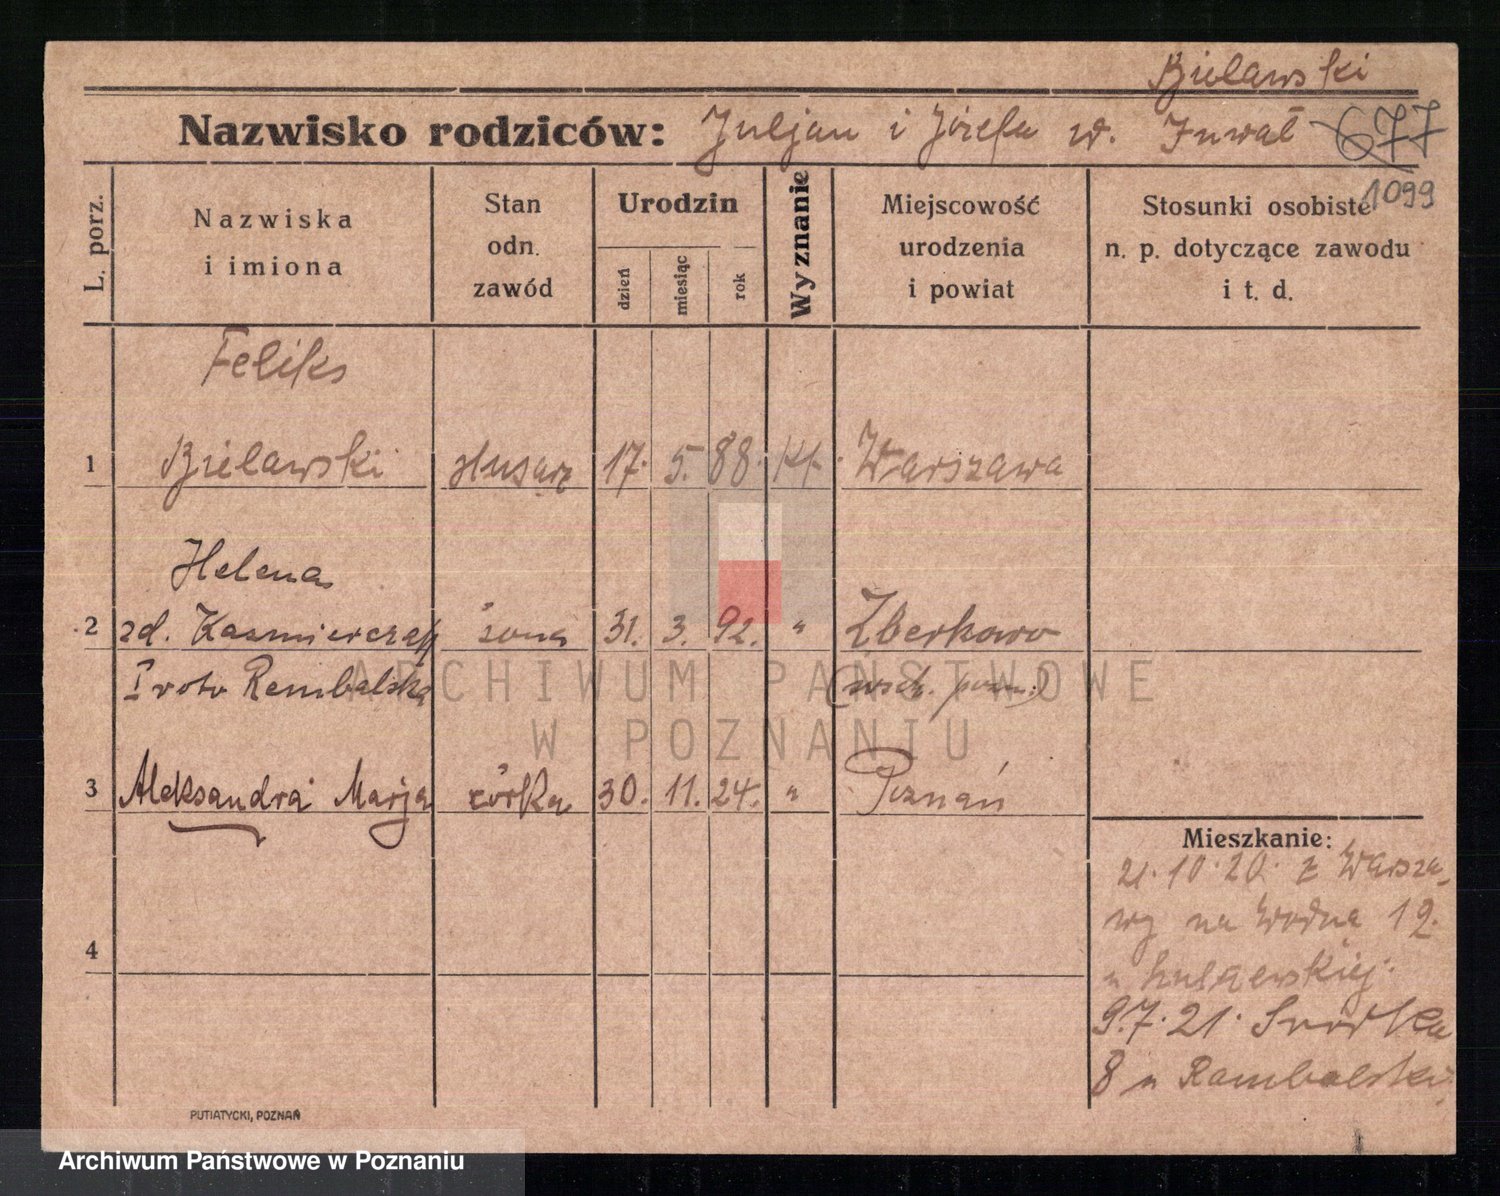 Bielawski
Nazwisko rodziców: Juljan i Józefa z d. Zuwał 677
1099
L. porz.
Nazwiska
i imiona
Stan
odn.
zawód
Urodzin
dzień
miesiąc
rok
Wyznanie
Miejscowość
urodzenia
i powiat
Stosunki osobiste
n. p. dotyczące zawodu
i t. d.
Feliks
1 Bielawski ślusarz 17. 5. 88. kt. Warszawa
Helena
2 zd. Kaźmierczak żona 31. 3. 92. " Żberkowo
I voto Rembalska (wsch. pozn.)
3 Aleksandra Marja córka 30. 11. 24. " Poznań
Mieszkanie:
21.10.20. z Warsza-
wy na Wodna 12.
4
9.7.21. Śródka
8 u Rembalski.
PUTIATYCKI, POZNAŃ
ARCHIWUM PAŃSTWOWE
W POZNANIU
Archiwum Państwowe w Poznaniu